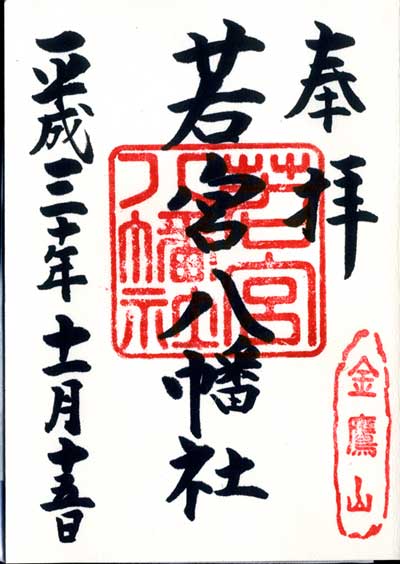 奉拝
金鷹山
若宮八幡社
若宮
八幡社
平成三十年十一月十五日